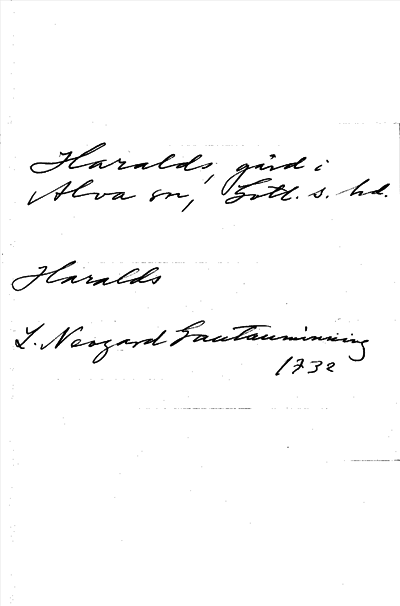 Haralds, gård i
Alva sn, Gotl. s. hd.
Haralds
L. Neogard Gautauminning
1732